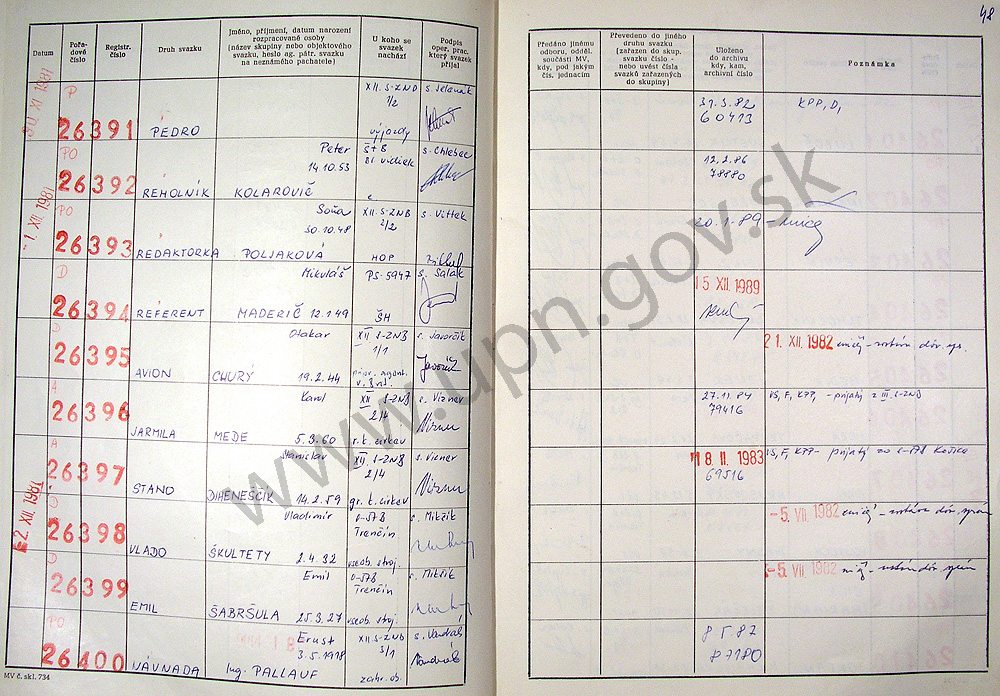 48
Datum
Pořa-
dové
číslo
Registr.
číslo
Druh svazku
Jméno, příjmení, datum narození
rozpracované osoby
(název skupiny nebo objektového
svazku, heslo ag. pátr. svazku
na neznámého pachatele)
U koho se
svazek
nachází
Podpis
oper. prac.
který svazek
přijal
Předáno jinému
odboru, odděl.
součásti MV,
kdy, pod jakým
čís. jednacím
Převedeno do jiného
druhu svazku
(zařazen do skup.
svazku číslo -
nebo uvést čísla
svazků zařazených
do skupiny)
Uloženo
do archivu
kdy, kam,
archivní číslo
Poznámka
30. XI 1981
P
26391
PEDRO
XII. S-ZNB
1/2
výjazdy
31.3.82
60413
KPP, D,
PO
26392
REHOLNÍK
Peter
14.10.53
KOLAROVIČ
ŠtB
BA vidiek
s. Chlebec
12.2.86
78880
-1. XII. 1981
PO
26393
REDAKTORKA
Soňa
30.10.48
POLJAKOVÁ
XII. S-ZNB
2/2
HOP
s. Vittek
20.1.89
D
26394
REFERENT
Mikuláš
MADERIČ 12.1.49
PS-5947
ŠH
s. Salák
15 XII. 1989
D
26395
AVION
Otakar
CHURÝ
19.2.44
XII S-ZNB
1/1
s. Javorčík
21. XII. 1982
A
26396
JARMILA
Karol
MEDE
5.3.60
XII S-ZNB
2/4
r.k. cirkev
s. Vizner
27.11.84
79416
VS, F, KPP, - prijatý z III. S-ZNB
A
26397
STANO
Stanislav
DIHENEŠČIK
14.2.59
XII. S-ZNB
2/4
gr. k. cirkev
s. Vizner
18. II. 1983
69516
-2. XII. 1981
D
26398
VLADO
Vladimír
ŠKULTETY
2.4.32
Trenčín
všeob. stroj.
s. Mikčík
-5. VII. 1982
D
26399
EMIL
Emil
ŠABRŠULA
25.3.27
Trenčín
všeob. stroj.
s. Mikčík
-5. VII. 1982
PO
26400
NÁVNADA
Ernst
3.5.1918
Ing. PALLAUF
XII S-ZNB
3/1
zahr. ob.
8.5.87
87180
MV č. skl. 734
www.upn.gov.sk